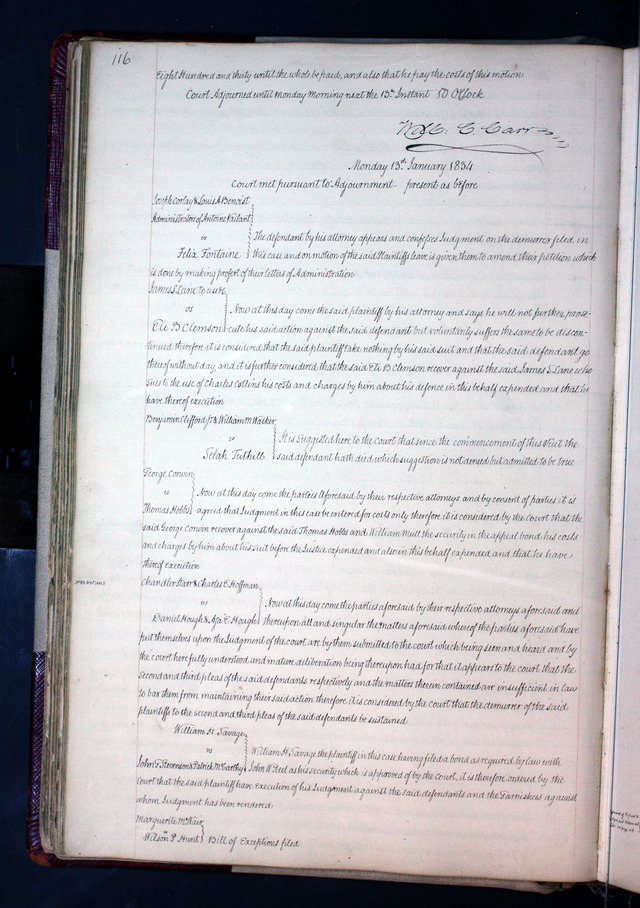 116
Eight Hundred and thirty until the whole be paid, and also that he pay the costs of this motion
Court Adjourned until Monday Morning next the 13th Instant 10 OClock
Wm C. Carr
Monday 13th January 1834
Court met pursuant to Adjournment present as before
Joseph Corlay & Louis A Benoist
Administrators of Antoine Vailant
vs
Felix Fontaine
The defendant by his attorney appears and confesses Judgment on the demurrer filed in
this case and on motion of the said Plaintiffs leave is given them to amend their petition which
is done by making profert of their letters of Administration
James S. Lane to use
vs
Eli B Clemson
Now at this day come the said plaintiff by his attorney and says he will not further prose-
cute his said action against the said defendant but voluntarily suffers the same to be discon-
tinued therefore it is considered that the said plaintiff take nothing by his said suit and that the said defendant go
thereof without day, and it is further considered that the said Eli B Clemson recover against the said James S Lane who
sues to the use of Charles Collins his costs and charges by him about his defence in this behalf expended and that he
have thereof execution
Benjamin Clifford Jr & William M Walker
vs
Selah Tuthill
It is suggested here to the court that since the commencement of this Suit the
said defendant hath died which suggestion is not denied but admitted to be true
George Corwin
vs
Thomas Hobbs
Now at this day come the parties aforesaid by their respective attorneys and by consent of parties it is
agreed that Judgment in this case be entered for costs only therefore it is considered by the court that the
said George Corwin recover against the said Thomas Hobbs and William Mull the security in the appeal bond his costs
and charges by him about his suit before the Justice expended and also in this behalf expended and that he have
thereof execution
Chandler Starr & Charles E Hoffman
vs
Daniel Hough & Asa E Hough
Now at this day come the parties aforesaid by their respective attorneys aforesaid and
thereupon all and singular the matters aforesaid whereof the parties aforesaid have
put themselves upon the Judgment of the court are by them submitted to the court which being seen and heard and by
the court here fully understood and mature deliberation being thereupon had, for that it appears to the court that the
second and third pleas of the said defendants respectively and the matters therein contained are insufficient in law
to bar them from maintaining their said action therefore it is considered by the court that the demurrer of the said
plaintiffs to the second and third pleas of the said defendants be sustained
William H Savage
vs
John T Stevenson & Patrick McCarthy
William H Savage the plaintiff in this case having filed a bond as required by law with
John W Reel as his security which is approved of by the court, it is therefore ordered by the
court that the said plaintiff have execution of his Judgment against the said defendants and the Garnishees against
whom Judgment has been rendered
Marguerite McNair
vs
Wilson P Hunt
Bill of Exceptions filed